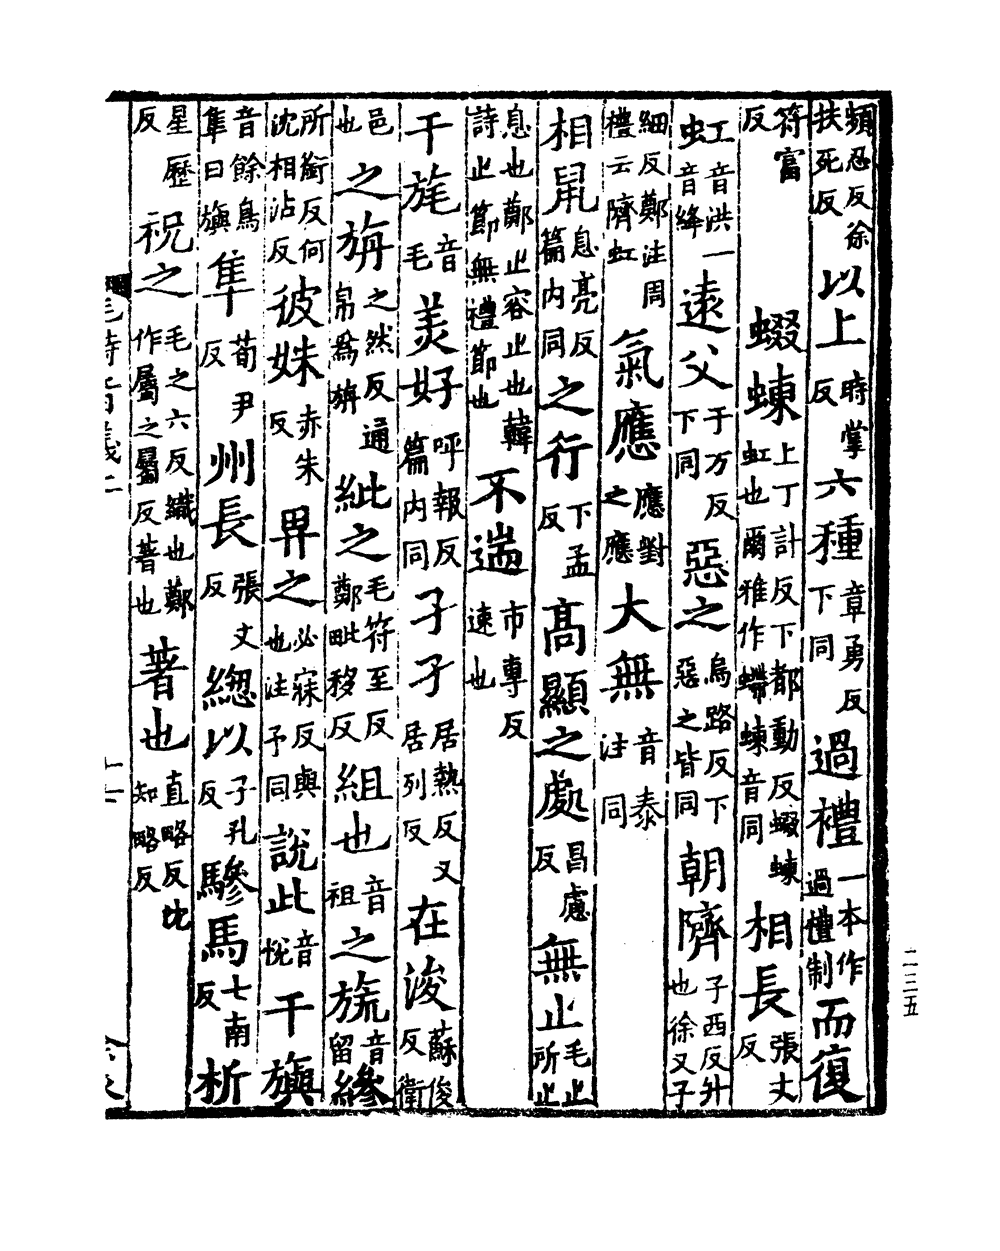 頻忍反徐扶死反以上時掌反六種章勇反下同過禮一本作過禮制而復
符富反
蝃蝀上丁計反下都動反蝃蝀虹也爾雅作螮蝀音同相長張丈反
虹音洪一音絳遠父于万反下同惡之烏路反下惡之皆同朝隮子西反升也徐又子
細反鄭注周禮云隮虹氣應應對之應大無音泰注同
相鼠息亮反篇內同之行下孟反高顯之處昌慮反無止毛止所止
息也鄭止容止也韓詩止節無禮節也不遄市專反速也
干旄音毛美好呼報反篇內同孑孑居熱反又居列反在浚蘇俊反衛
邑也之旃之然反通帛為旃紕之毛符至反鄭毗移反組也音祖之旒音留縿
所銜反何沈相沾反彼姝赤朱反畀之必寐反與也注予同說此音悅干旟
音餘鳥隼曰旟隼荀尹反州長張丈反緫以子孔反驂馬七南反析
星歷反祝之毛之六反織也鄭作屬之蜀反著也著也直略反比知略反
毛詩音義二
二三五